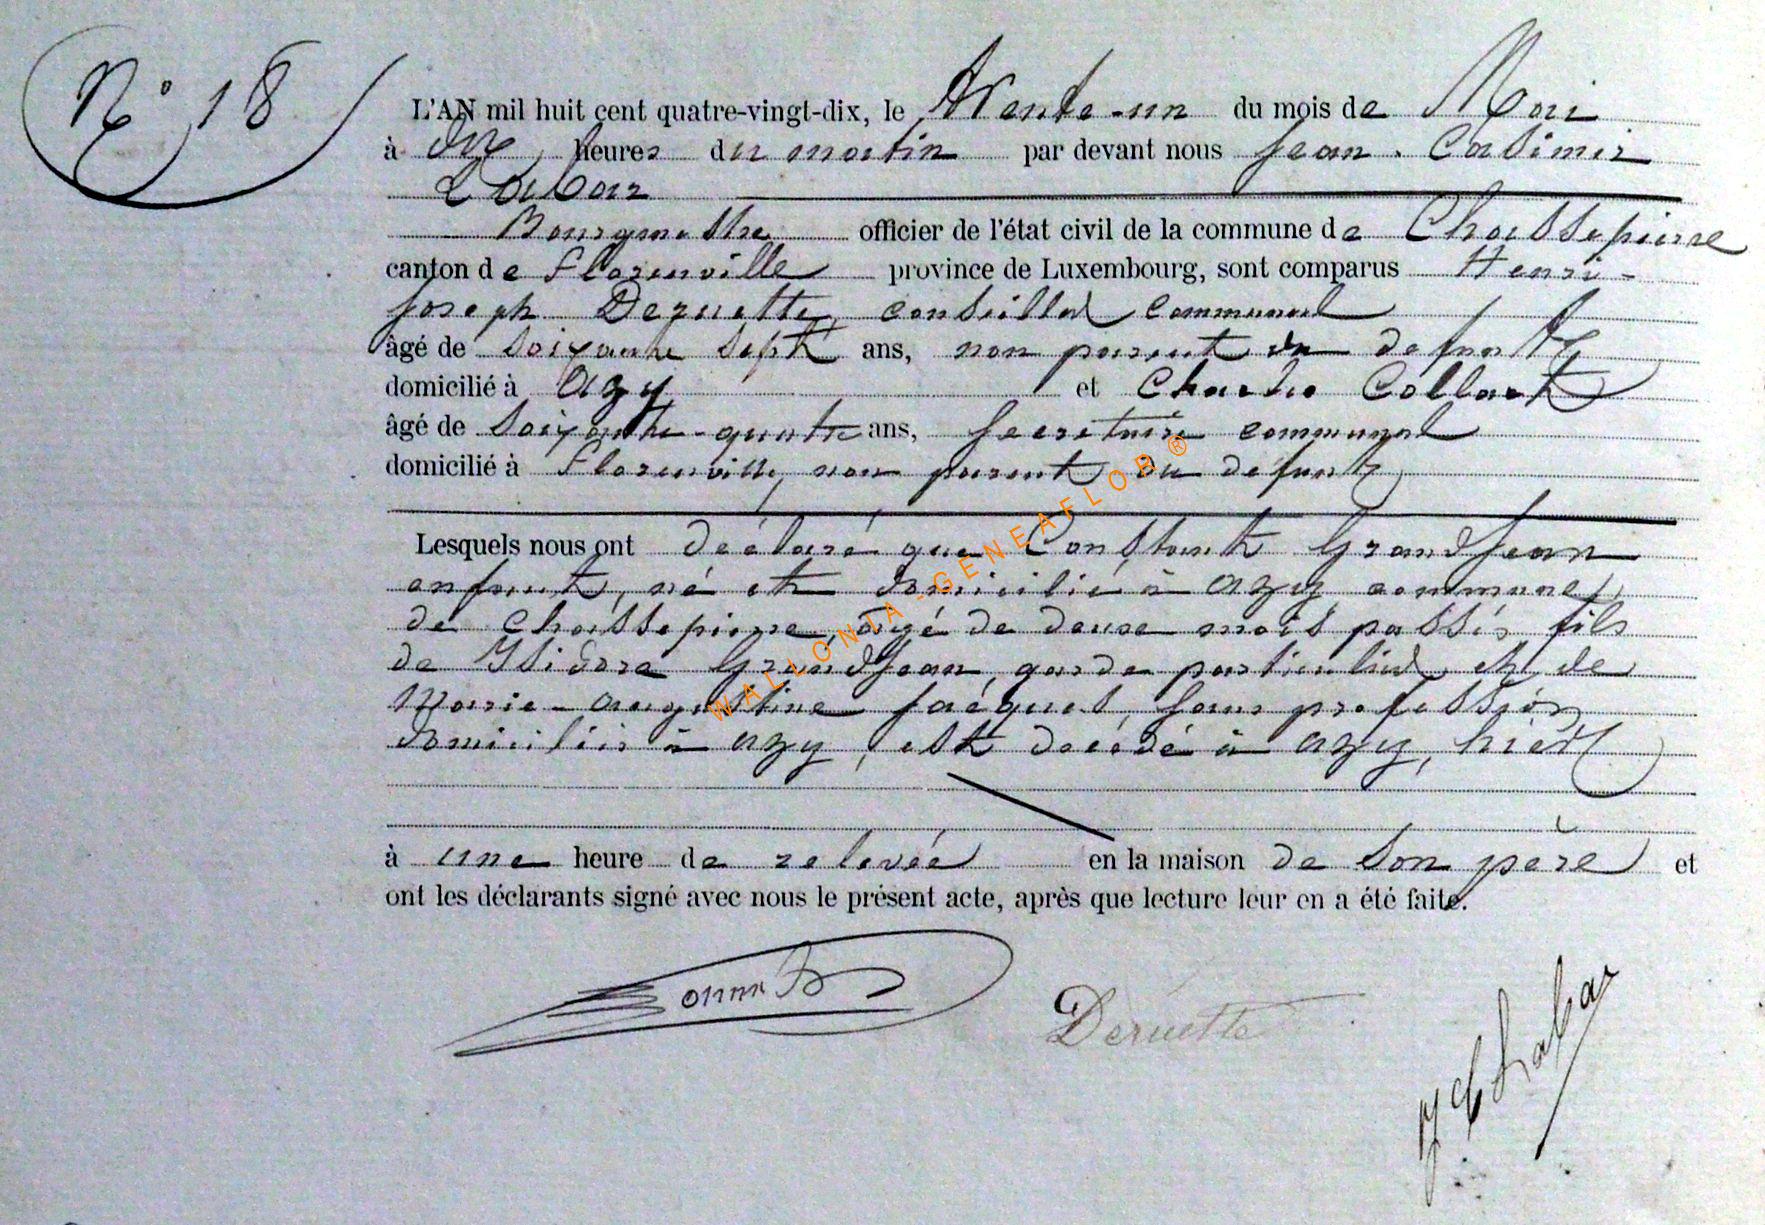 N° 18
L'AN mil huit cent quatre-vingt-dix, le trente-un du mois de Mai
à dix heures du matin par devant nous Jean-Casimir
Labar
Bourgmestre officier de l'état civil de la commune de Chassepierre
canton de Florenville province de Luxembourg, sont comparus Henri-
Joseph Deruette, conseiller communal
âgé de soixante sept ans, non parent du defunt,
domicilié à Azy et Charles Collart
âgé de soixante-quatre ans, secretaire communal
domicilié à Florenville, non parent du defunt,
Lesquels nous ont déclaré que Constant Grandjean
enfant, né et domicilié à Azy, commune,
de Chassepierre, âgé de deux mois passés, fils
de Isidore Grandjean, garde particulier et de
Marie-Augustine Jacques, sans profession,
domiciliés à Azy, est décédé à Azy, hier
à une heure de relevée en la maison de son père et
ont les déclarants signé avec nous le présent acte, après que lecture leur en a été faite.
Deruette
WALLONIA-GENEAFLOR®